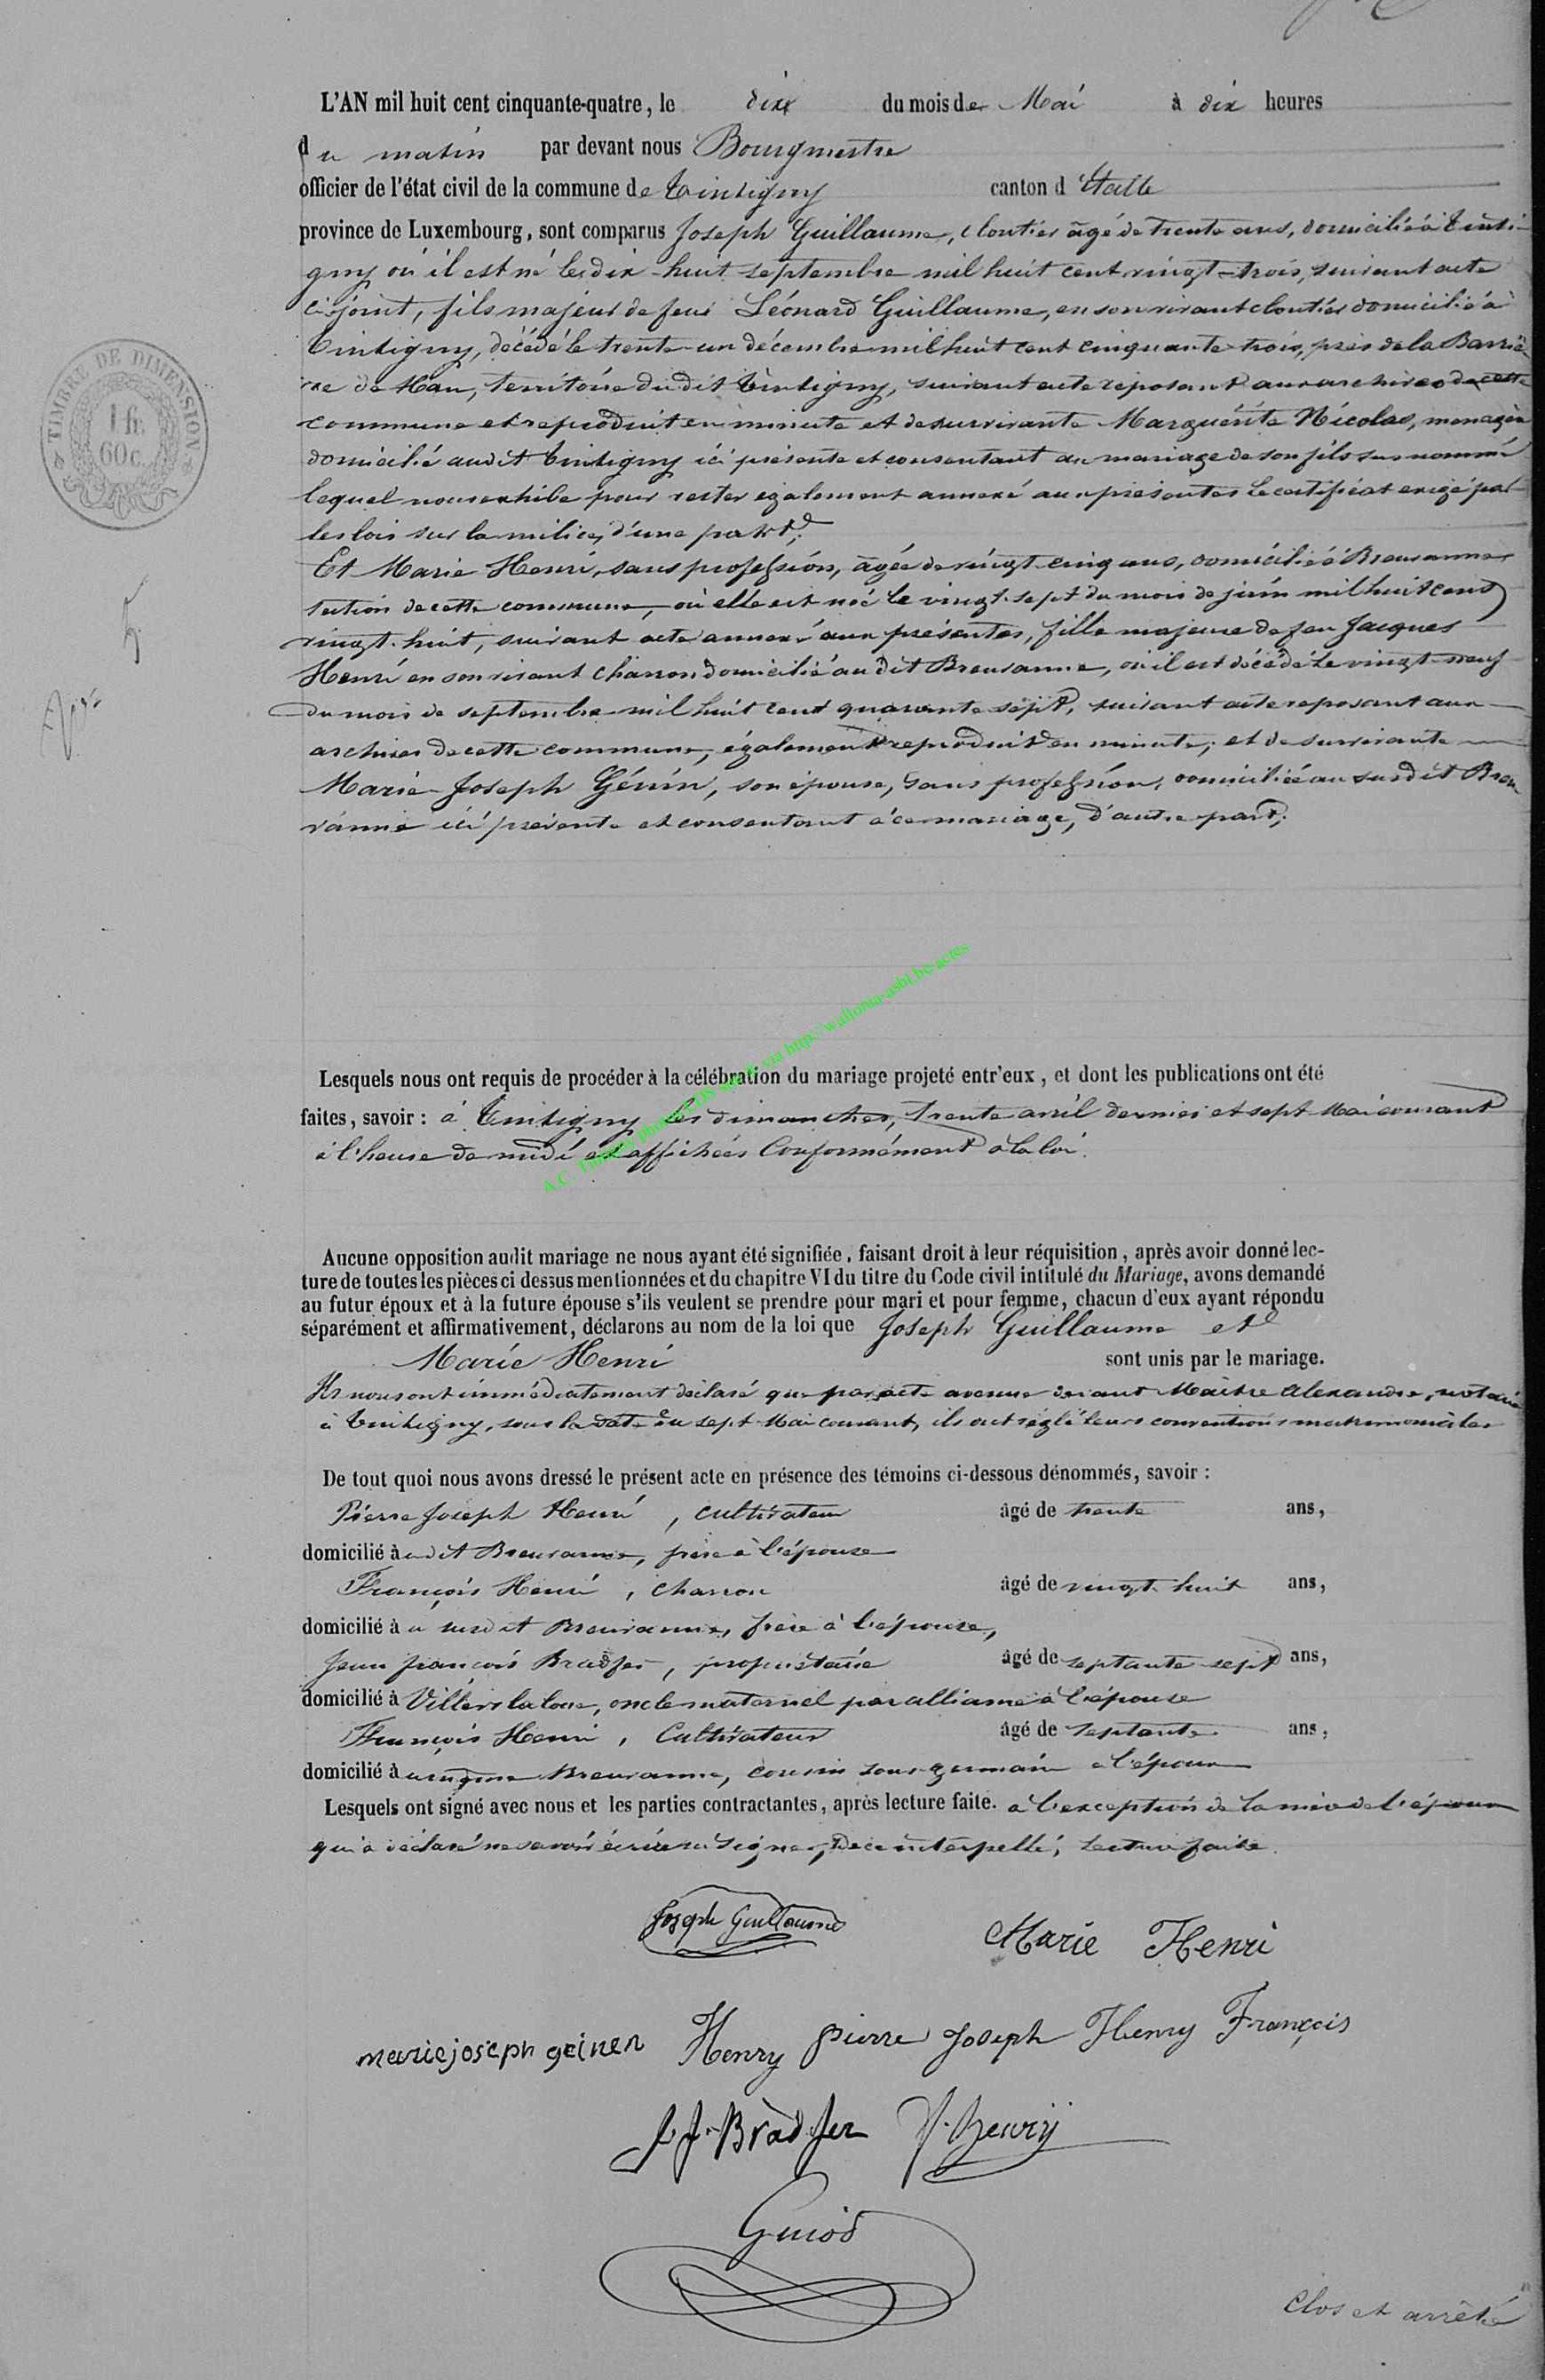 L'AN mil huit cent cinquante-quatre, le dix du mois de Mai à dix heures
du matin par devant nous Bourgmestre
officier de l'état civil de la commune de Tintigny canton d'Etalle
province de Luxembourg, sont comparus Joseph Guillaume, cloutier âgé de trente ans, domicilié à Tinti-
gny où il est né le dix-huit septembre mil huit cent vingt-trois, suivant acte
ci-joint, fils majeur de feu Léonard Guillaume, en son vivant cloutier domicilié à
Tintigny, décédé le trente-un décembre mil huit cent cinquante-trois, près de la Barriè
re de Han, territoire du dit Tintigny, suivant acte reposant aux archives de cette
commune et reproduit en minute et de survivante Marguerite Nicolas, menagère
domicilié audit Tintigny ici présente et consentant au mariage de son fils sus nommé
lequel nous exhibe pour rester également annexé aux présentes le certificat exigé par
les lois sur la milice, d'une part;
Et Marie Henri, sans profession, âgée de vingt-cinq ans, domicilié à Breuvanne
section de cette commune, où elle est née le vingt-sept du mois de juin mil huit cent
vingt-huit, suivant acte annexé aux présentes, fille majeure de feu Jacques
Henri en son vivant charron domicilié au dit Breuvanne, où il est décédé le vingt-neuf
du mois de septembre mil huit cent quarante sept, suivant acte reposant aux
archives de cette commune, également reproduit en minute; et de survivante
Marie-Joseph Génin, son épouse, sans profession, domiciliée au susdit Breu
vanne ici présente et consentant à ce mariage, d'autre part;
A.C. Tintigny photos via http://wallonia-asbl.be/actes
Lesquels nous ont requis de procéder à la célébration du mariage projeté entr'eux, et dont les publications ont été
faites, savoir : à Tintigny les dimanches, trente avril dernier et sept Mai courant
à l'heure de midi et affichées Conformément à la loi.
Aucune opposition audit mariage ne nous ayant été signifiée, faisant droit à leur réquisition, après avoir donné lec-
ture de toutes les pièces ci dessus mentionnées et du chapitre VI du titre du Code civil intitulé du Mariage, avons demandé
au futur époux et à la future épouse s'ils veulent se prendre pour mari et pour femme, chacun d'eux ayant répondu
séparément et affirmativement, déclarons au nom de la loi que Joseph Guillaume et
Marie Henri sont unis par le mariage.
Ils nous ont immédiatement déclaré que par acte avenue devant Maître Alexandre, notaire
à Tintigny, sous la date du sept Mai courant, ils ont réglé leurs conventions matrimoniales
De tout quoi nous avons dressé le présent acte en présence des témoins ci-dessous dénommés, savoir :
Pierre Joseph Henri, cultivateur âgé de trente ans,
domicilié à udit Breuvanne, frère à l'épouse
François Henri, charron âgé de vingt-huit ans,
domicilié à u susdit Breuvanne, frère à l'épouse,
Jean françois Bradfer, propriétaire âgé de septante-sept ans,
domicilié à Villers la loue, oncle maternel par alliance à l'épouse
François Henri, Cultivateur âgé de septante ans,
domicilié à u même Breuvanne, cousin sous-germain à l'épouse
Lesquels ont signé avec nous et les parties contractantes, après lecture faite. à l'exception de la mère de l'époux
qui a déclaré ne savoir écrire ni signer, de ce interpellé; lecture faite.
Joseph Guillaume
Marie Henri
marie joseph geinen Henry pierre Joseph Henry François
J J. Bradfer f. henry
Guiod
Clos et arrêté
TIMBRE DE DIMENSION
1 fr.
60c.